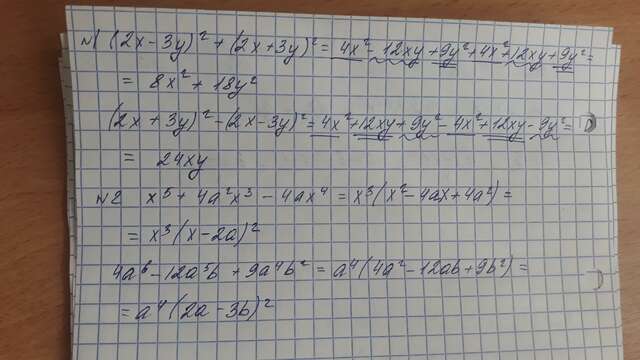 №1 (2x-3y)² + (2x+3y)² = 4x² - 12xy + 9y² + 4x² + 12xy + 9y² =
= 8x² + 18y²
(2x + 3y)² - (2x - 3y)² = 4x² + 12xy + 9y² - 4x² + 12xy - 9y² =
= 24xy
№2 x⁵ + 4a²x³ - 4ax⁴ = x³(x² - 4ax + 4a²) =
= x³(x - 2a)²
4a⁶ - 12a⁵b + 9a⁴b² = a⁴(4a² - 12ab + 9b²) =
= a⁴(2a - 3b)²